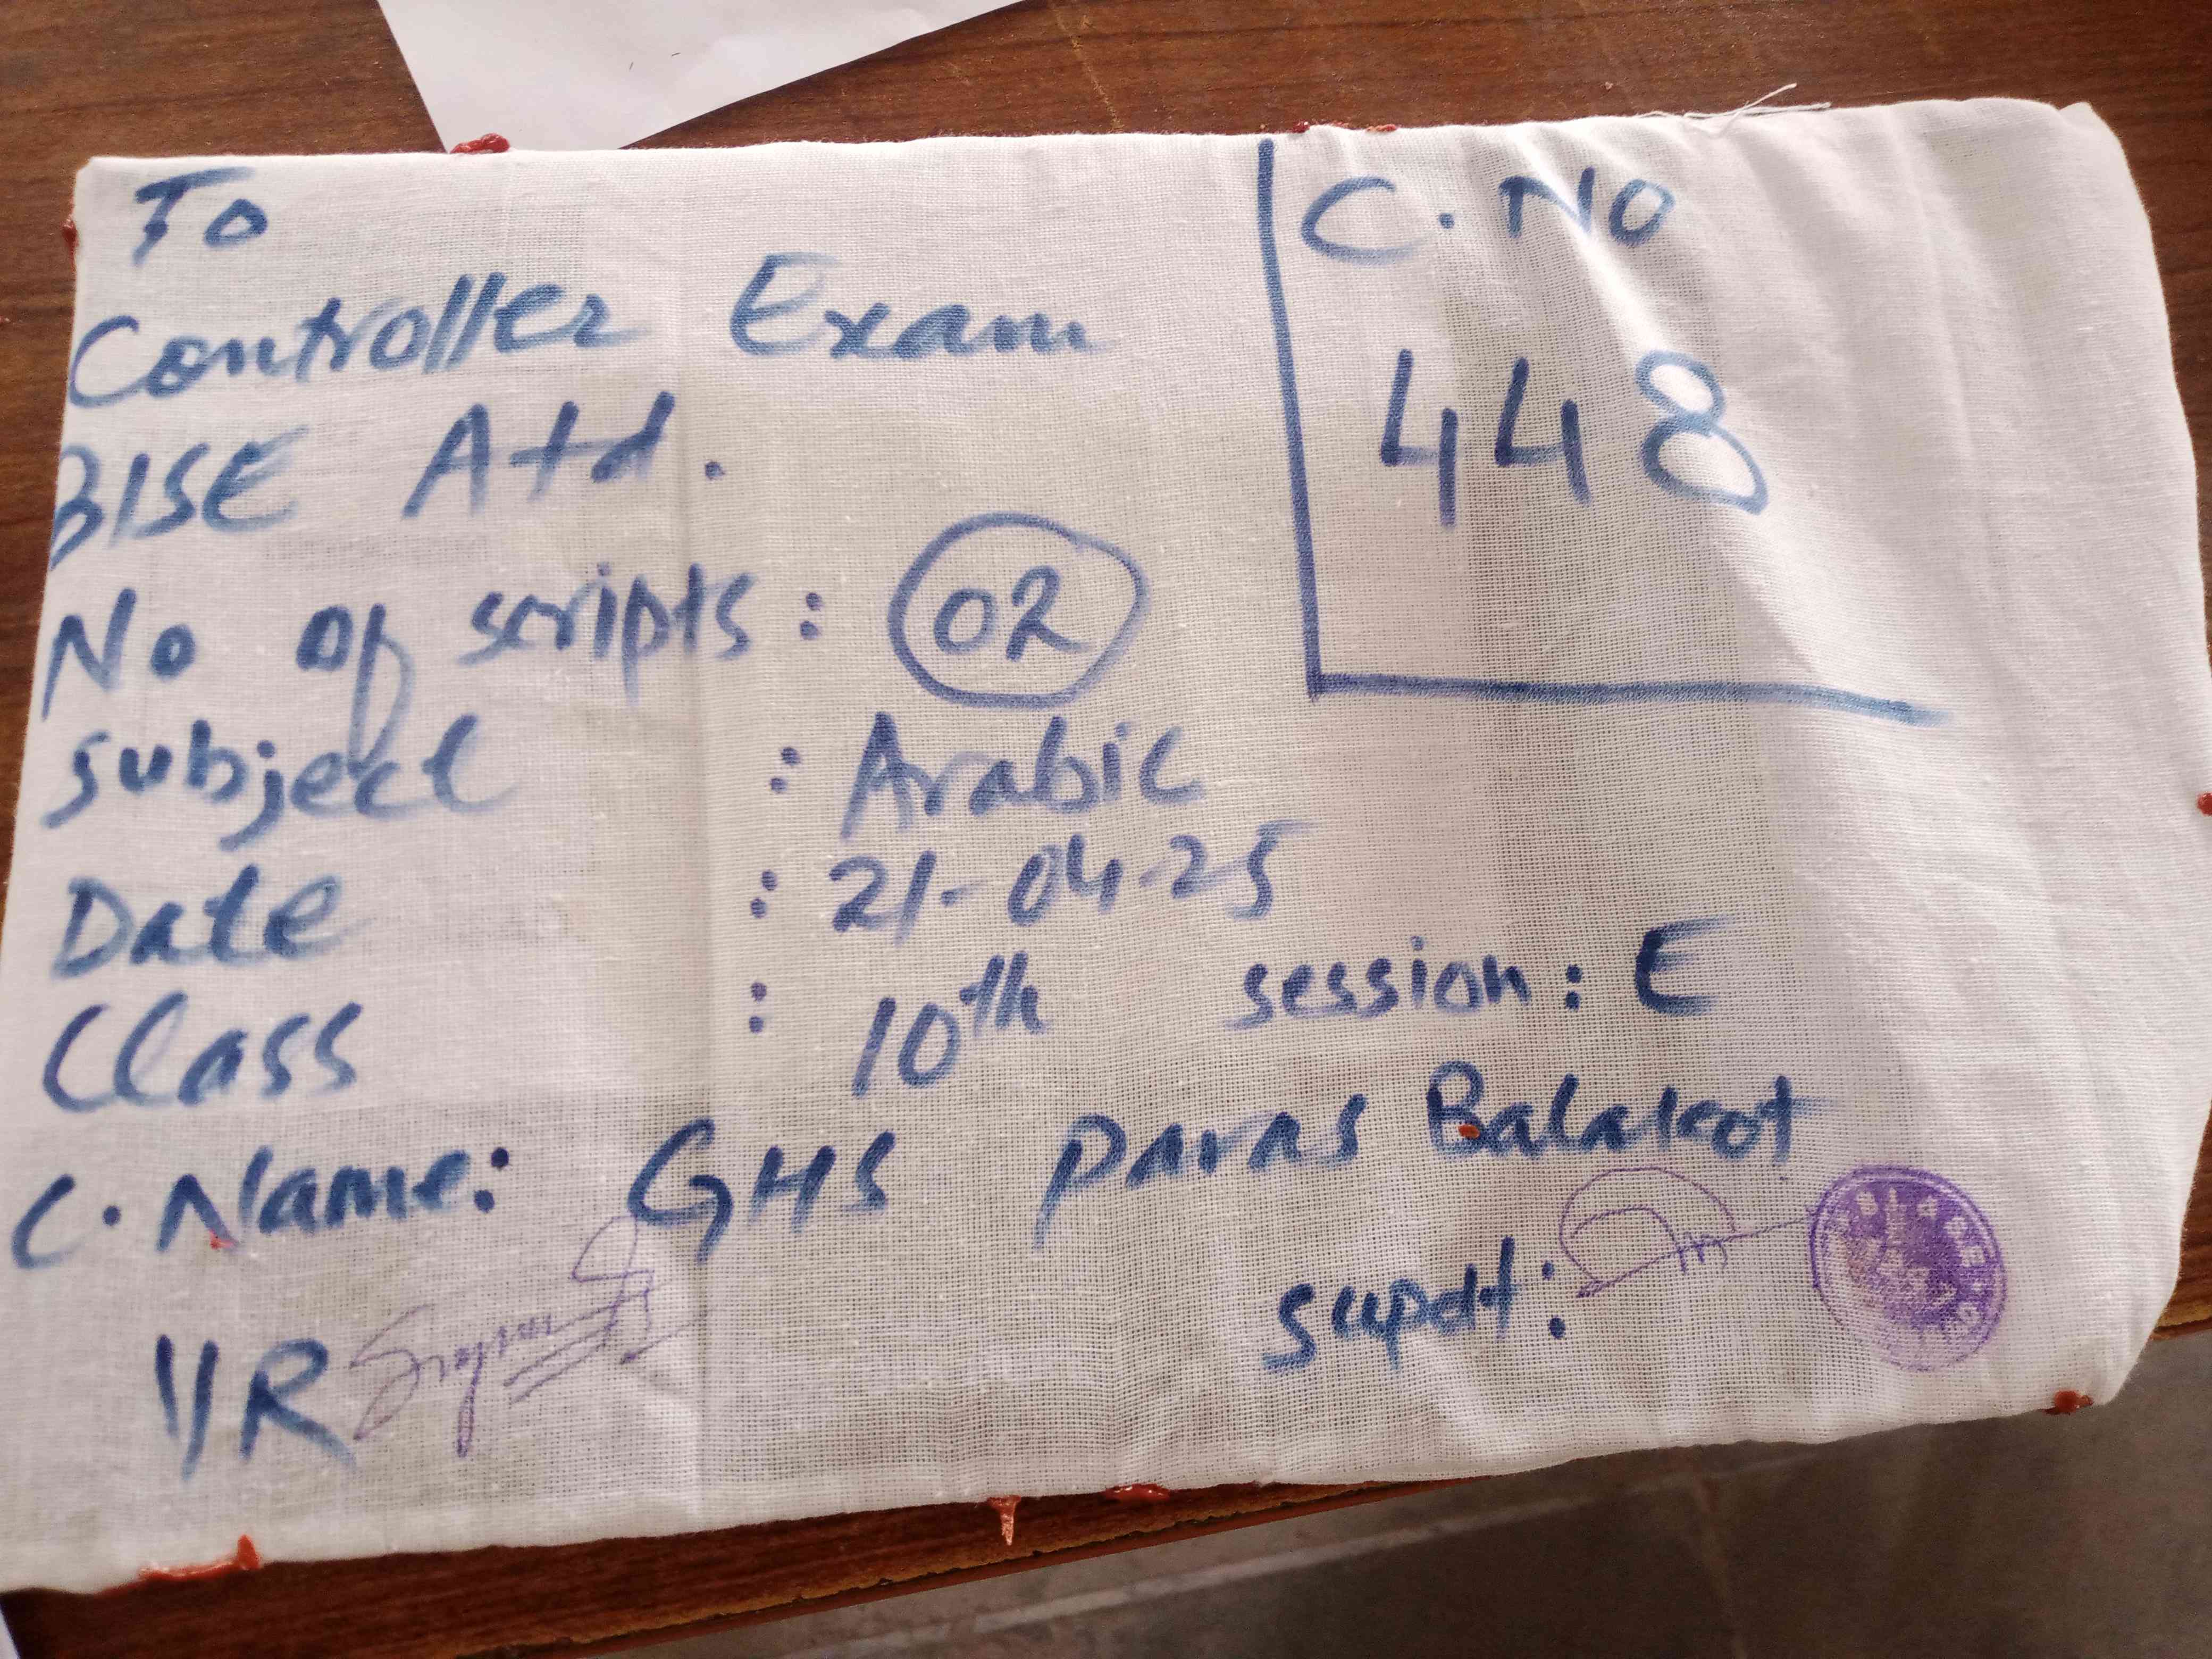 To
Controller Exam
BISE Atd.
C. No
448
No of scripts : 02
subject : Arabic
Date : 21-04-25
Class : 10th session : E
C. Name: GHS Paras Balakot
supdt: